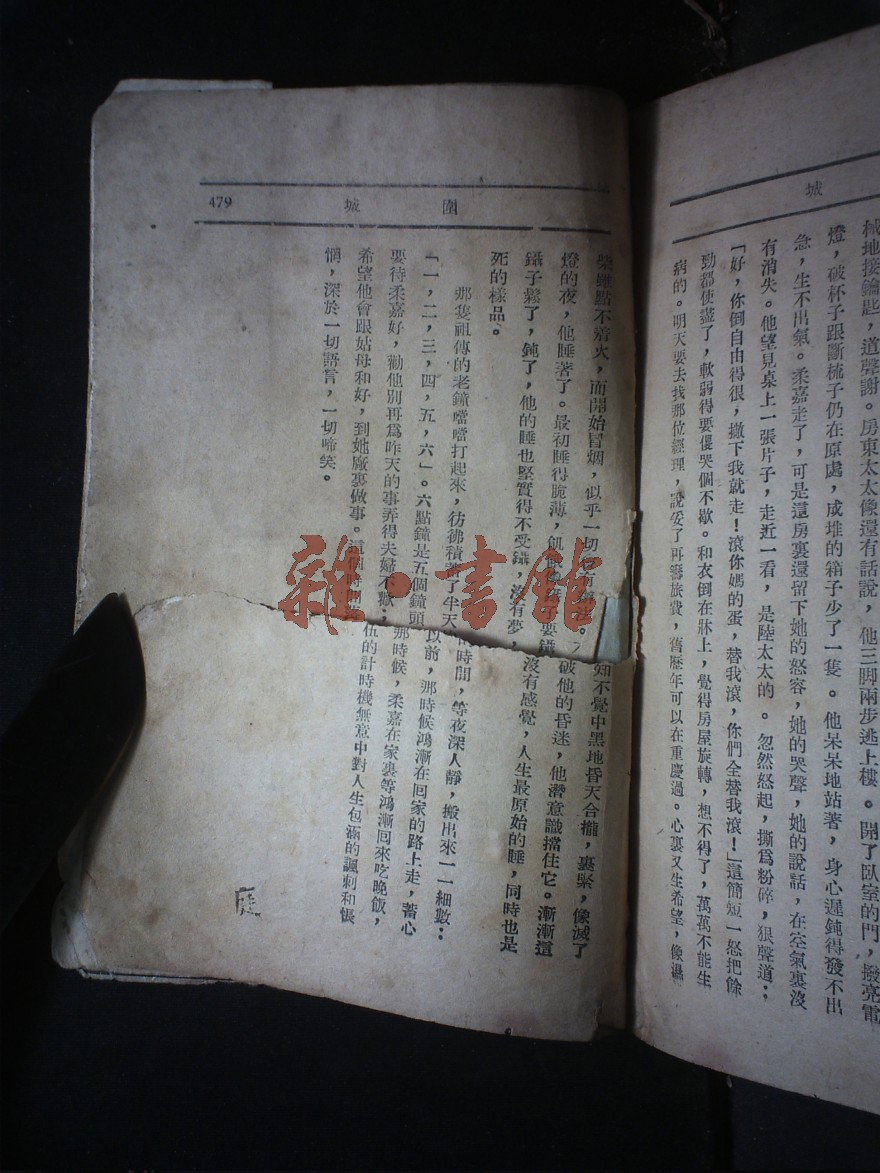 城
械地接鑰匙，道聲謝。房東太太像還有話說，他三脚兩步逃上樓。開了臥室的門，撥亮電
燈，破杯子跟斷梳子仍在原處，成堆的箱子少了一隻。他呆呆地站著，身心遲鈍得發不出
急，生不出氣。柔嘉走了，可是這房裏還留下她的怒容，她的哭聲，她的說話，在空氣裏沒
有消失。他望見桌上一張片子，走近一看，是陸太太的。忽然怒起，撕爲粉碎，狠聲道：
「好，你倒自由得很，撇下我就走！滾你媽的蛋，替我滾，你們全替我滾！」這簡短一怒把餘
勁都使盡了，軟弱得要傻哭個不歇。和衣倒在牀上，覺得房屋旋轉，想不得了，萬萬不能生
病的。明天要去找那位經理，說妥了再籌旅費，舊曆年可以在重慶過。心裏又生希望，像濕
圍城
479
柴雖點不着火，而開始冒烟，似乎一切 知不覺中黑地昏天合攏，裹緊，像滅了
燈的夜，他睡著了。最初睡得脆薄，飢餓 子要鑷破他的昏迷，他潛意識擋住它。漸漸這
鑷子鬆了，鈍了，他的睡也堅實得不受鑷，沒有夢，沒有感覺，人生最原始的睡，同時也是
死的樣品。
那隻祖傳的老鐘噹噹打起來，彷彿積蓄了半天 時間，等夜深人靜，搬出來一一細數：
「一，二，三，四，五，六」。六點鐘是五個鐘頭以前，那時候鴻漸在回家的路上走，蓄心
要待柔嘉好，勸他別再爲昨天的事弄得夫婦不歡；那時候，柔嘉在家裏等鴻漸回來吃晚飯，
希望他會跟姑母和好，到她廠裏做事。這個時間 伍的計時機無意中對人生包涵的諷刺和悵
惘，深於一切語言，一切啼笑。
雜·書館